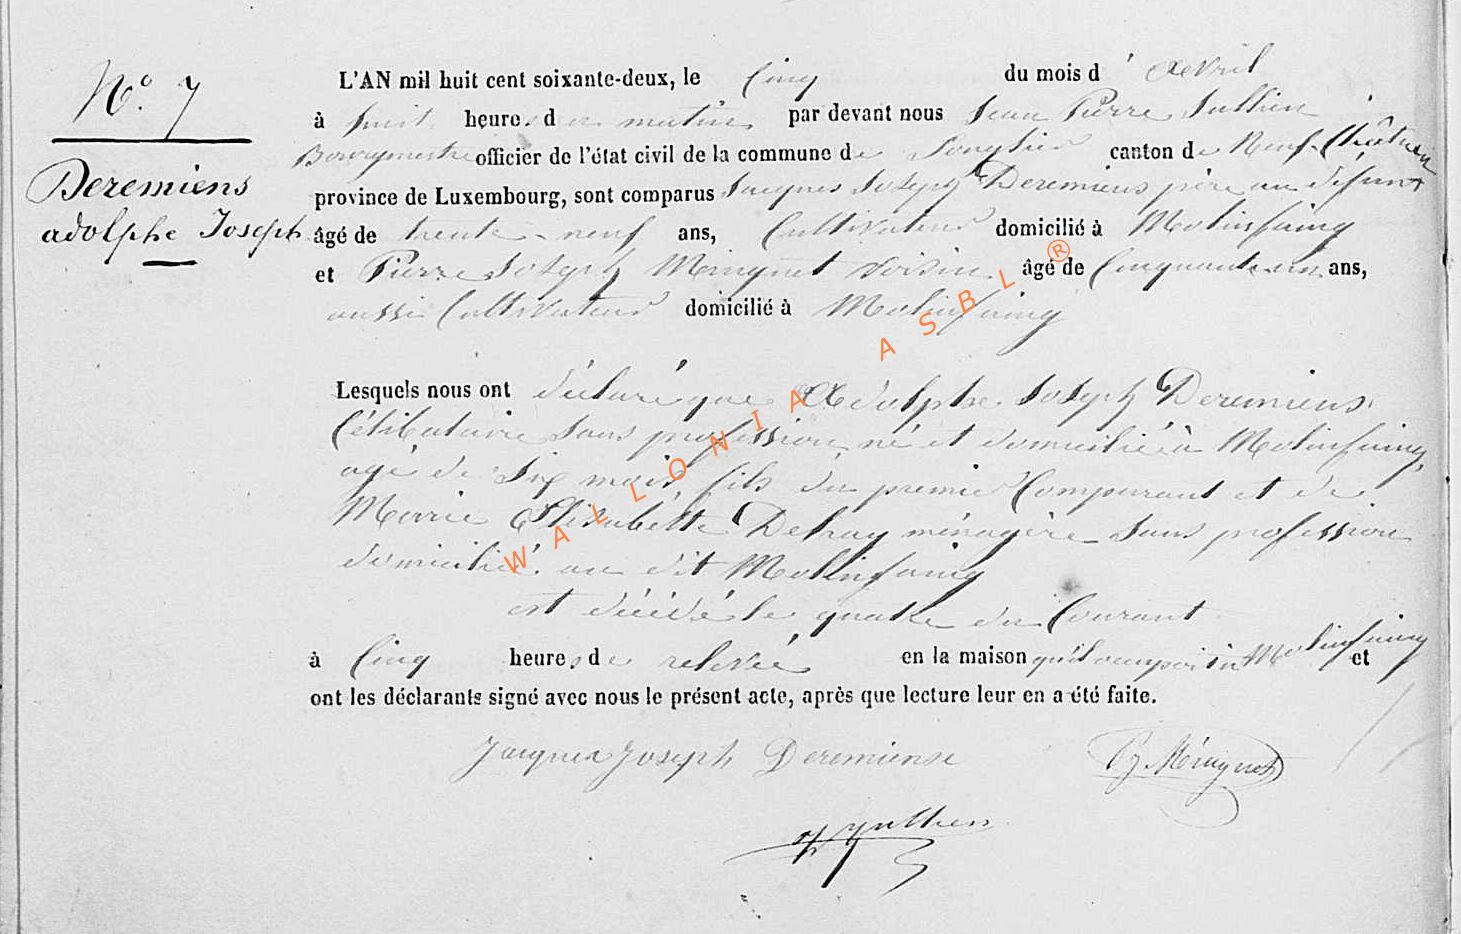 N° 7
Deremiens
adolphe Joseph
L'AN mil huit cent soixante-deux, le Cinq du mois d' Avril
à huit heures du matin par devant nous Jean Pierre
Bourgmestre officier de l'état civil de la commune de Longlier canton de Neufchâteau
province de Luxembourg, sont comparus Jacques Joseph Deremiens père au défunt
âgé de trente-neuf ans, Cultivateur domicilié à Molinfaing
et Pierre Joseph voisin âgé de Cinquante un ans,
aussi Cultivateur domicilié à Molinfaing
Lesquels nous ont déclaré que Adolphe Joseph Deremiens
Célibataire sans profession né et domicilié à Molinfaing,
agé de Six mois, fils du premier Comparant et de
Marie Elisabette ménagère sans profession
domicilié au dit Molinfaing
est décédé le quatre du Courant
à Cinq heures de relevée en la maison qu'il occupoit à Molinfaing et
ont les déclarants signé avec nous le présent acte, après que lecture leur en a été faite.
Jacques Joseph Deremiense
WALLONIA ASBL ®